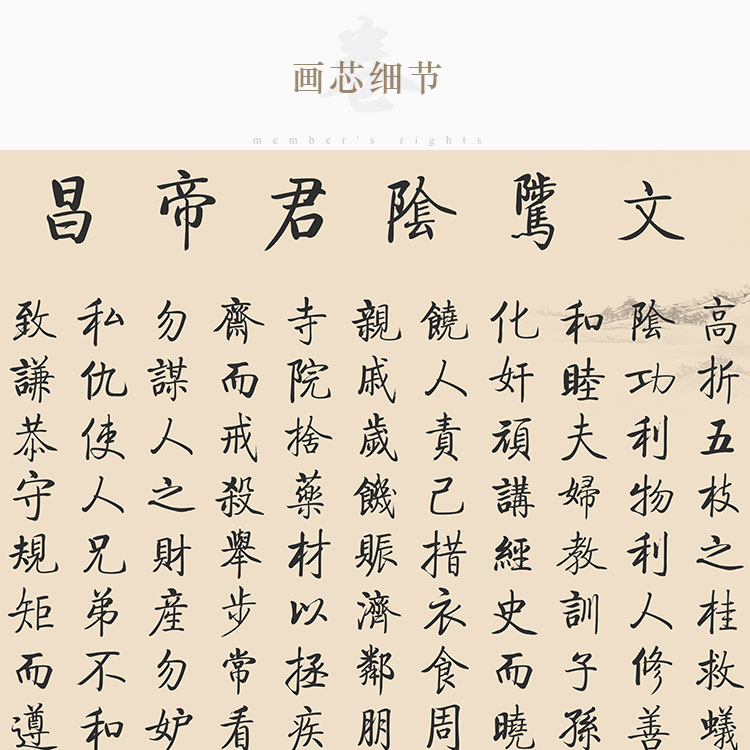 画芯细节
member's rights
昌帝君陰騭文
高折五枝之桂救蟻
陰功利物利人修善
和睦夫婦教訓子孫
化奸頑講經史而曉
饒人責己措衣食周
親戚歲饑賑濟鄰朋
寺院捨藥材以拯疾
齋而戒殺舉步常看
勿謀人之財産勿妒
私仇使人兄弟不和
致謙恭守規矩而遵